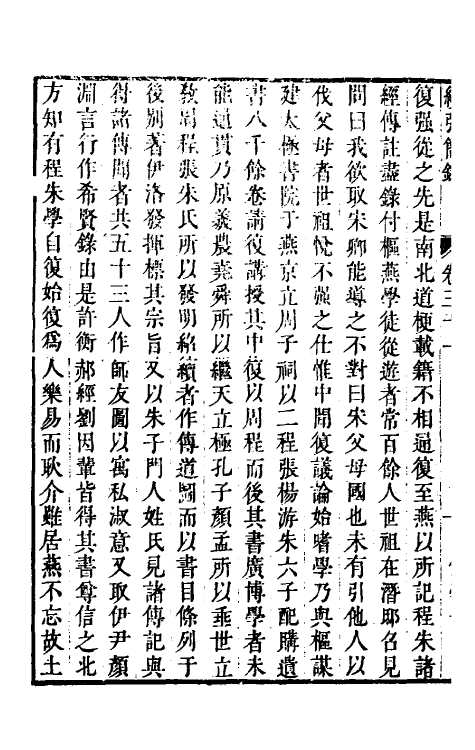 復强從之先是南北道梗載籍不相通復至燕以所記程朱諸
經傳註盡錄付樞燕學徒從遊者常百餘人世祖在潛邸召見
問曰我欲取宋卿能導之不對曰宋父母國也未有引他人以
伐父母者世祖悅不强之仕惟中聞復議論始嗜學乃與樞謀
建太極書院于燕京立周子祠以二程張楊游朱六子配購遺
書八千餘卷請復講授其中復以周程而後其書廣博學者未
能通貫乃原羲農堯舜所以繼天立極孔子顏孟所以垂世立
敎周程張朱氏所以發明紹續者作傳道圖而以書目條列于
後別著伊洛發揮標其宗旨又以朱子門人姓氏見諸傳記與
得諸傳聞者共五十三人作師友圖以寓私淑意又取伊尹顏
淵言行作希賢錄由是許衡郝經劉因輩皆得其書尊信之北
方知有程朱學自復始復爲人樂易而耿介雖居燕不忘故土